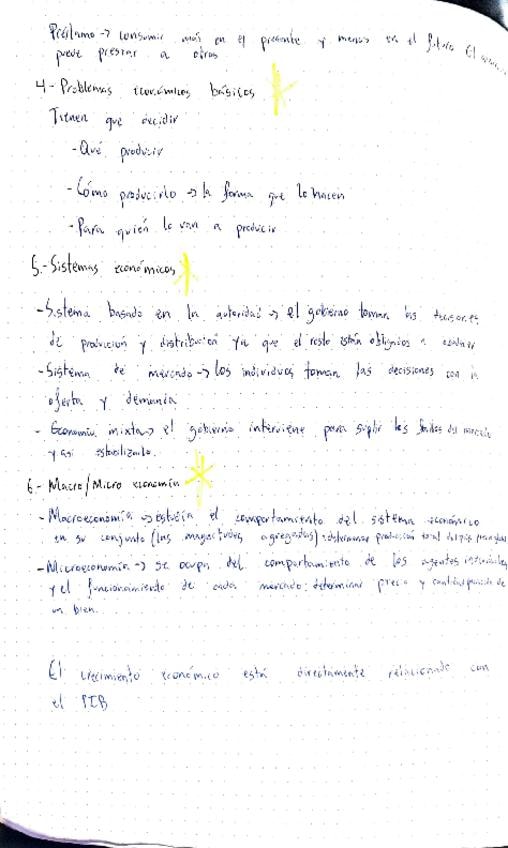 Préstamo → consumir más en el presente y menos en el futuro. El
puede prestar a otros
4- Problemas económicos básicos
Tienen que decidir
- Qué producir
- Cómo producirlo → la forma que lo hacen
- Para quién lo van a producir
5.- Sistemas económicos
- Sistema basado en la autoridad → el gobierno toman las decisiones
de producción y distribución ya que el resto están obligados a
- Sistema de mercado → Los individuos toman las decisiones con la
oferta y demanda
- Economía mixta → el gobierno interviene para suplir los fallos del mercado
y así estabilizarlo.
6- Macro/Micro economía
- Macroeconomía → estudia el comportamiento del sistema económico
en su conjunto (las magnitudes agregadas): determinar producción total
- Microeconomía → se ocupa del comportamiento de los agentes individuales
y el funcionamiento de cada mercado: determinar precio y cantidad de
un bien.
El crecimiento económico está directamente relacionado con
el PIB